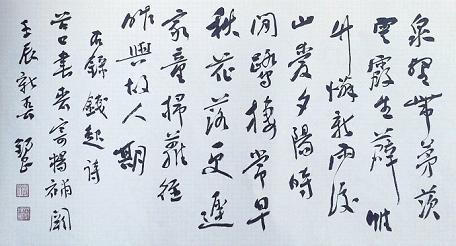 泉壑帶茅茨
雲霞生薜帷
竹憐新雨後
山愛夕陽時
閒鷺棲常早
秋花落更遲
家童掃蘿徑
昨與故人期
右錄錢起詩
谷口書齋寄楊補闕
壬辰新春